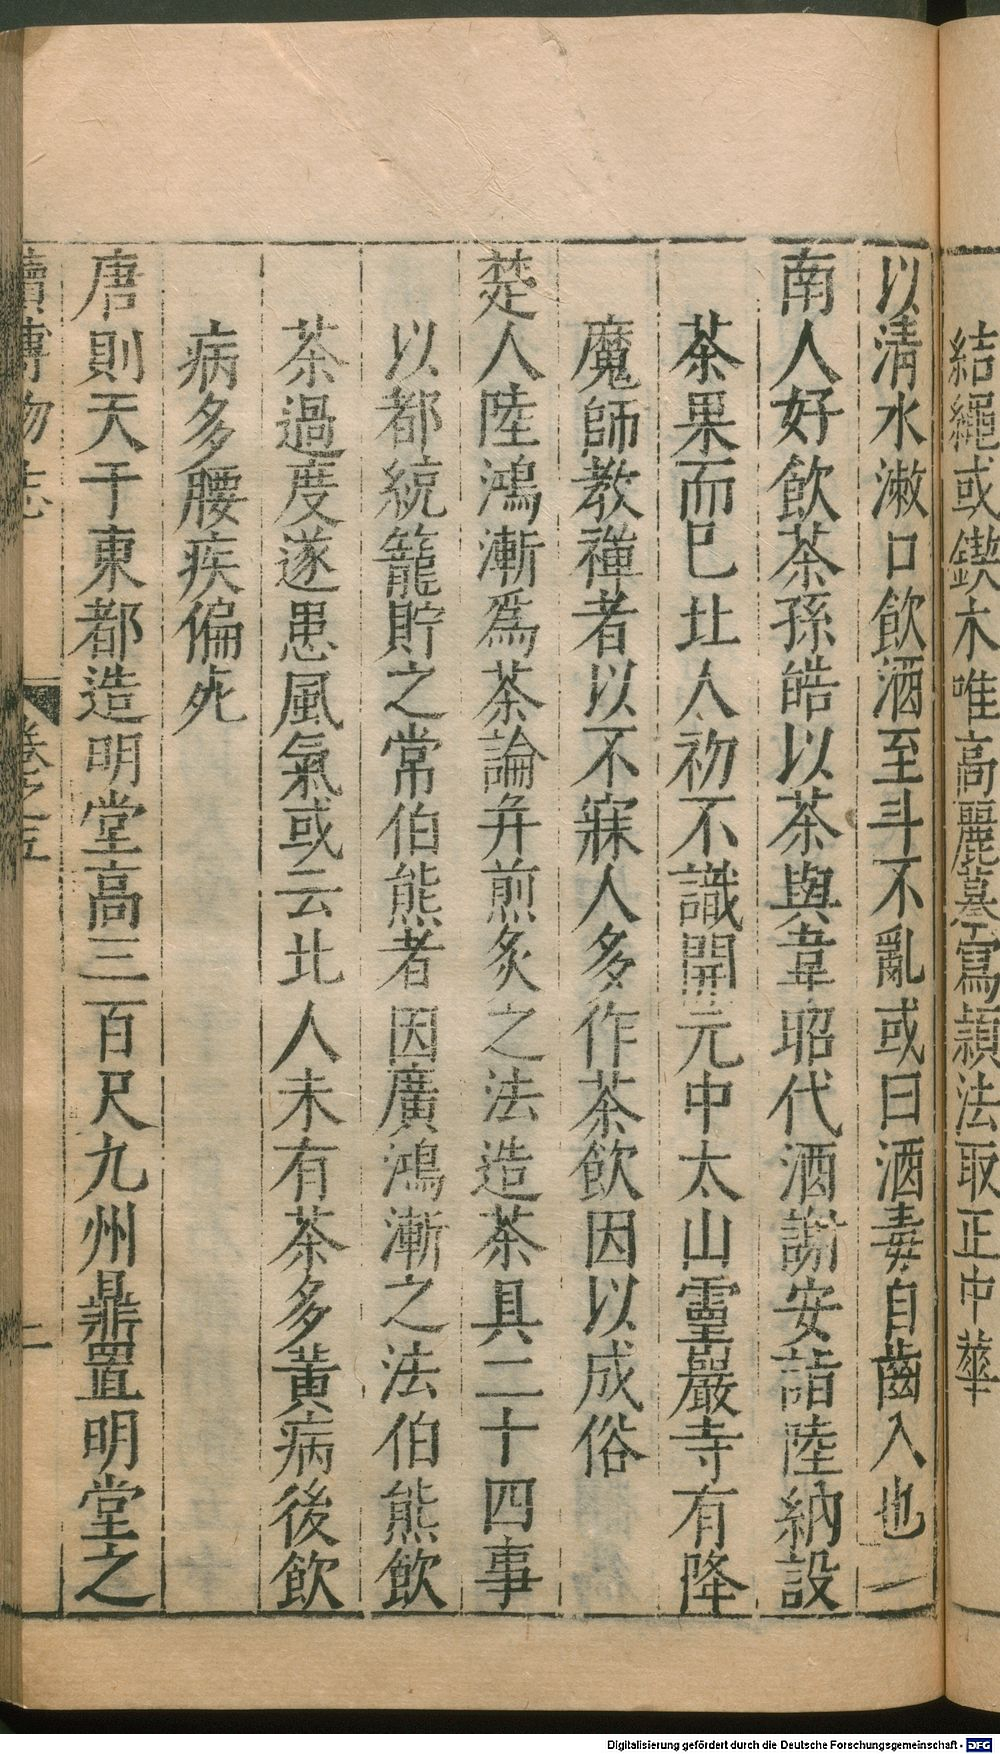 結繩或鍥木唯高麗墓寫潁法取正中華
以清水漱口飲酒至斗不亂或曰酒毒自齒入也
南人好飲茶孫皓以茶與韋昭代酒謝安詣陸納設
茶果而巳北人初不識開元中太山靈巖寺有降
魔師教禪者以不寐人多作茶飲因以成俗
楚人陸鴻漸爲茶論并煎炙之法造茶具二十四事
以都統籠貯之常伯熊者因廣鴻漸之法伯熊飲
茶過度遂患風氣或云北人未有茶多黄病後飲
病多腰疾偏死
唐則天于東都造明堂高三百尺九州鼎置明堂之
續博物志 卷之五
Digitalisierung gefördert durch die Deutsche Forschungsgemeinschaft - DFG